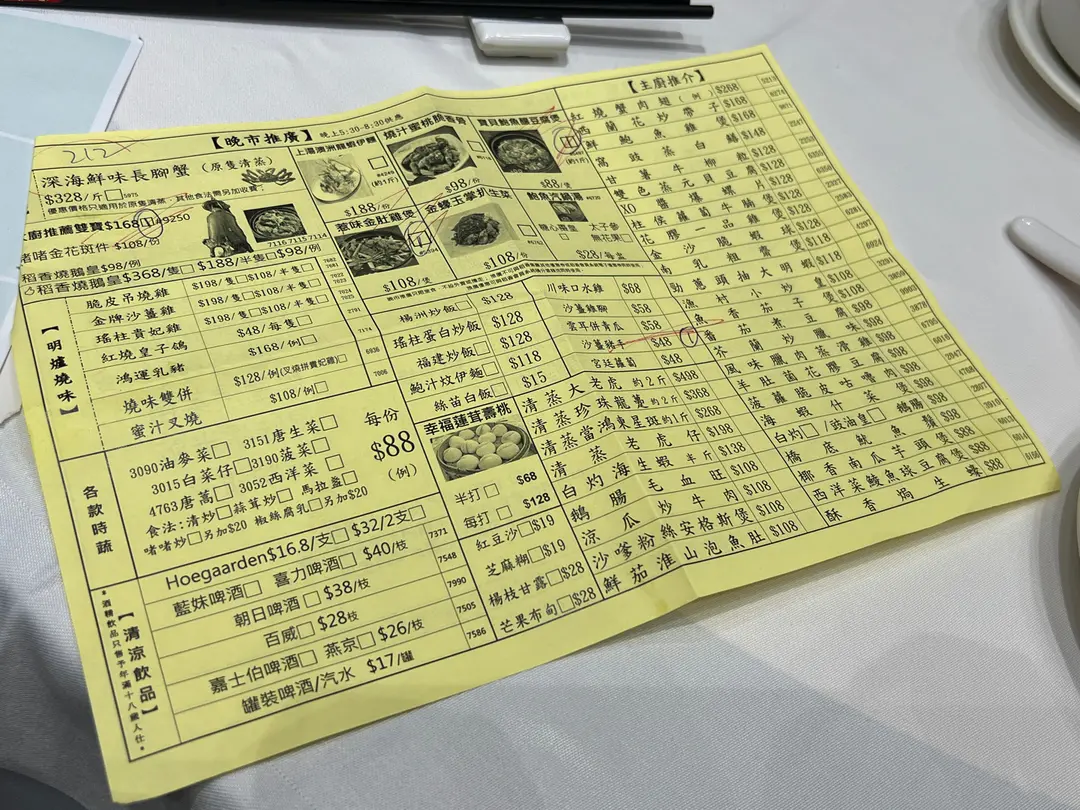 212
【晚市推廣】 晚上5:30-8:30供應
深海鮮味長腳蟹 (原隻清蒸)
$328/斤 5975
優惠價格只適用於原隻清蒸，其他食法需另加收費
廚推薦雙寶$168 1 49250
啫啫金花斑件 $108/份
稻香燒鵝皇$98/例
稻香燒鵝皇$368/隻 $188/半隻 $98/例
7116 7115 7114
上湯澳洲龍蝦伊麵
$188/份
燒汁蜜桃脆香骨
$98/份
寶貝鮑魚釀豆腐煲 1
$88/煲
蔥味金肚雞煲 1
$108/煲
金錢玉掌扒生菜
$108/份
鮑魚汽鍋湯
糖心
太子參
無花果
$28/每盅
【明爐燒味】
脆皮吊燒雞 $198/隻 $108/半隻
金牌沙薑雞 $198/隻 $108/半隻
瑤柱貴妃雞 $198/隻 $108/半隻
紅燒皇子鴿 $48/每隻
鴻運乳豬 $168/例
燒味雙併 $128/例(叉燒拼貴妃雞)
蜜汁叉燒 $108/例
7174
6936
7006
各款時蔬
3090油麥菜 3151唐生菜
3015白菜仔 3190菠菜
4763唐萵 3052西洋菜
食法:清炒 蒜茸炒 馬拉盞
啫啫炒 另加$20 椒絲腐乳 另加$20
每份
$88
(例)
【清涼飲品】
*酒精飲品只售予年滿十八歲人仕*
Hoegaarden$16.8/支 $32/2支
藍妹啤酒 喜力啤酒 $40/枝 7371
朝日啤酒 $38/枝 7548
百威 $28枝 7990
嘉士伯啤酒 燕京 $26/枝 7505
罐裝啤酒/汽水 $17/罐 7586
楊洲炒飯 $128
瑤柱蛋白炒飯 $128
福建炒飯 $128
鮑汁炆伊麵 $118
絲苗白飯 $15
幸福蓮茸壽桃
半打 $68
每打 $128
紅豆沙 $19
芝麻糊 $19
楊枝甘露 $28
芒果布甸 $28
川味口水雞 $68
沙薑雞腳 $58
雲耳併青瓜 $58
沙薑豬手 $48 1
宮廷蘿蔔 $48
清蒸大老虎 約2斤 $498
清蒸珍珠龍躉 約2斤 $368
清蒸當鴻東星斑 約1斤 $268
清蒸老虎仔 $198
白灼海生蝦 半斤 $138
鵝腸毛血旺 $108
涼瓜炒牛肉 $108
沙嗲粉絲安格斯煲 $108
鮮茄淮山泡魚肚 $108
【主廚推介】
紅燒蟹肉翅(例) $268 5213
西蘭花炒帶子 $168
鮮鮑魚雞煲 $168
窩豉蒸白鱔 $148
甘薯牛柳粒 $128
雙色蒸元貝豆腐 $128
XO醬爆螺片 $128
柱侯蘿蔔牛腩煲 $128
花膠一品雞煲 $128
金沙脆蝦球 $128
南乳粗齋煲 $118
勁蔥頭抽大明蝦 $118
漁村小炒皇 $108
魚香茄子煲 $108
番茄煮豆腐 $98
芥蘭炒臘味 $98
風味臘肉蒸滑雞 $98
羊肚菌花膠豆腐 $98
菠蘿脆皮咕嚕肉 $98
海蝦什菜煲 $98
白灼 /豉油皇 鵝腸 $98
橋底魷魚鬚 $98
椰香南瓜芋頭煲 $88
西洋菜鯪魚球豆腐煲 $88
酥香焗生蠔 $88